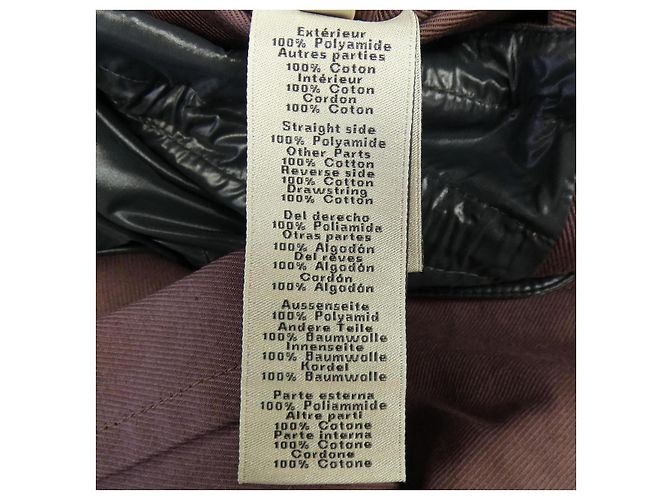 Extérieur
100% Polyamide
Autres parties
100% Coton
Intérieur
100% Coton
Cordon
100% Coton
Straight side
100% Polyamide
Other Parts
100% Cotton
Reverse side
100% Cotton
Drawstring
100% Cotton
Del derecho
100% Poliamida
Otras partes
100% Algodón
Del rêves
100% Algodón
Cordón
100% Algodón
Aussenseite
100% Polyamid
Andere Teile
100% Baumwolle
Innenseite
100% Baumwolle
Kordel
100% Baumwolle
Parte esterna
100% Poliammide
Altre parti
100% Cotone
Parte interna
100% Cotone
Cordone
100% Cotone